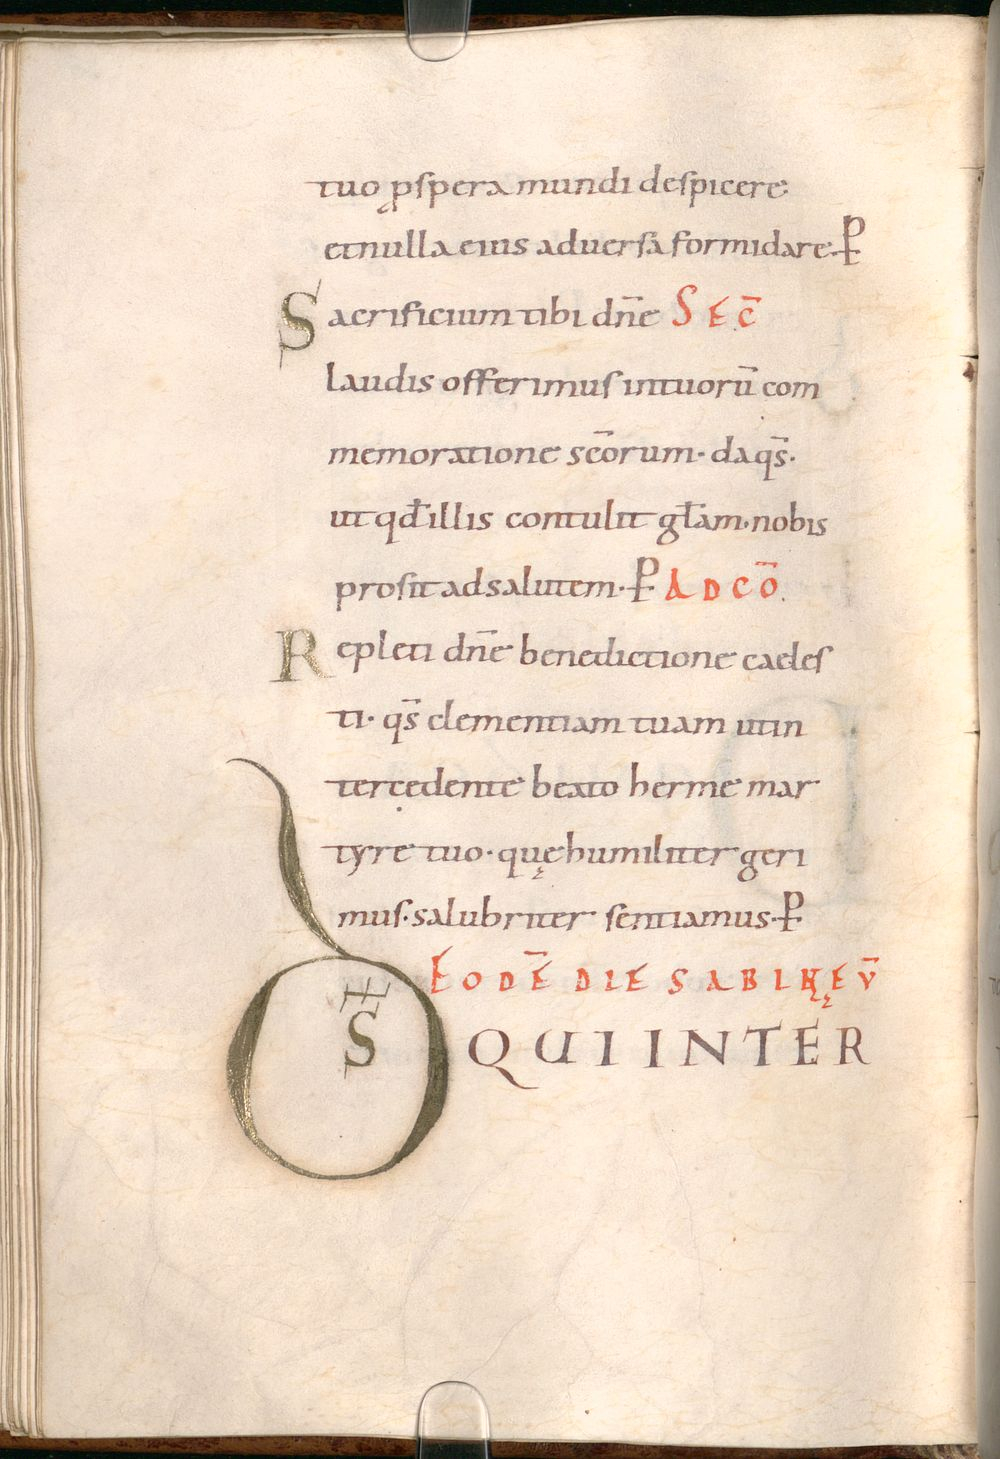 tuo ꝓspera mundi despicere
et nulla eius aduersa formidare· P̄
Sacrificium tibi dn̄e SEC̄
laudis offerimus in tuorū com
memoratione sc̄orum· da qs̄·
ut qđ illis contulit głam· nobis
prosit ad salutem· P̄ AD CŌ
Repleti dn̄e benedictione caeles
ti· qs̄ clementiam tuam ut in
tercedente beato herme mar
tyre tuo· quę humiliter geri
mus· salubriter sentiamus· P̄
EODĒ DIE SABINĘ EV̄
DS̄ QUI INTER